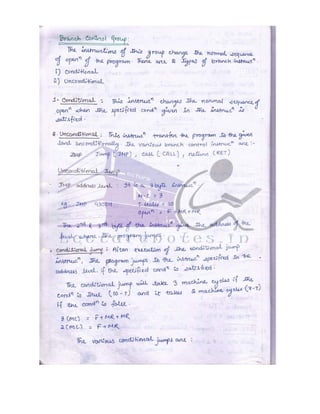 Branch Control Group:
The instructions of this group change the normal sequence
of open^n of the program. There are 2 types of branch instruc^n
1) Conditional
2) Unconditional
1- Conditional : This instruc^n changes the normal sequence of
open^n when the specified cond^n given in the instruc^n is
satisfied.
2. Unconditional: This instruc^n transfers the program to the given
level unconditionally. The various branch control instruc^n are :-
Jump (JMP), Call (CALL), return (RET)
Unconditional Jump :-
JMP address level : It is a 3 byte instruc^n
M-C = 3
eg. JMP T-states = 10
open^n = F+MR+MR
The 2nd & 3rd byte of the instruc^n give the address of the
level where the program jumps.
Lecturenotes.in
- Conditional Jump : After execution of the conditional jump
instruc^n, the program jumps to the instruc^n specified in the
address level if the specified cond^n is satisfied.
The conditional jump will take 3 machine cycles if the
cond^n is true (10-T) and it takes 2 machine cycles (7-T)
if the cond^n is false.
3(MC) = F+MR+MR
2(MC) = F+MR
The various conditional jumps are :